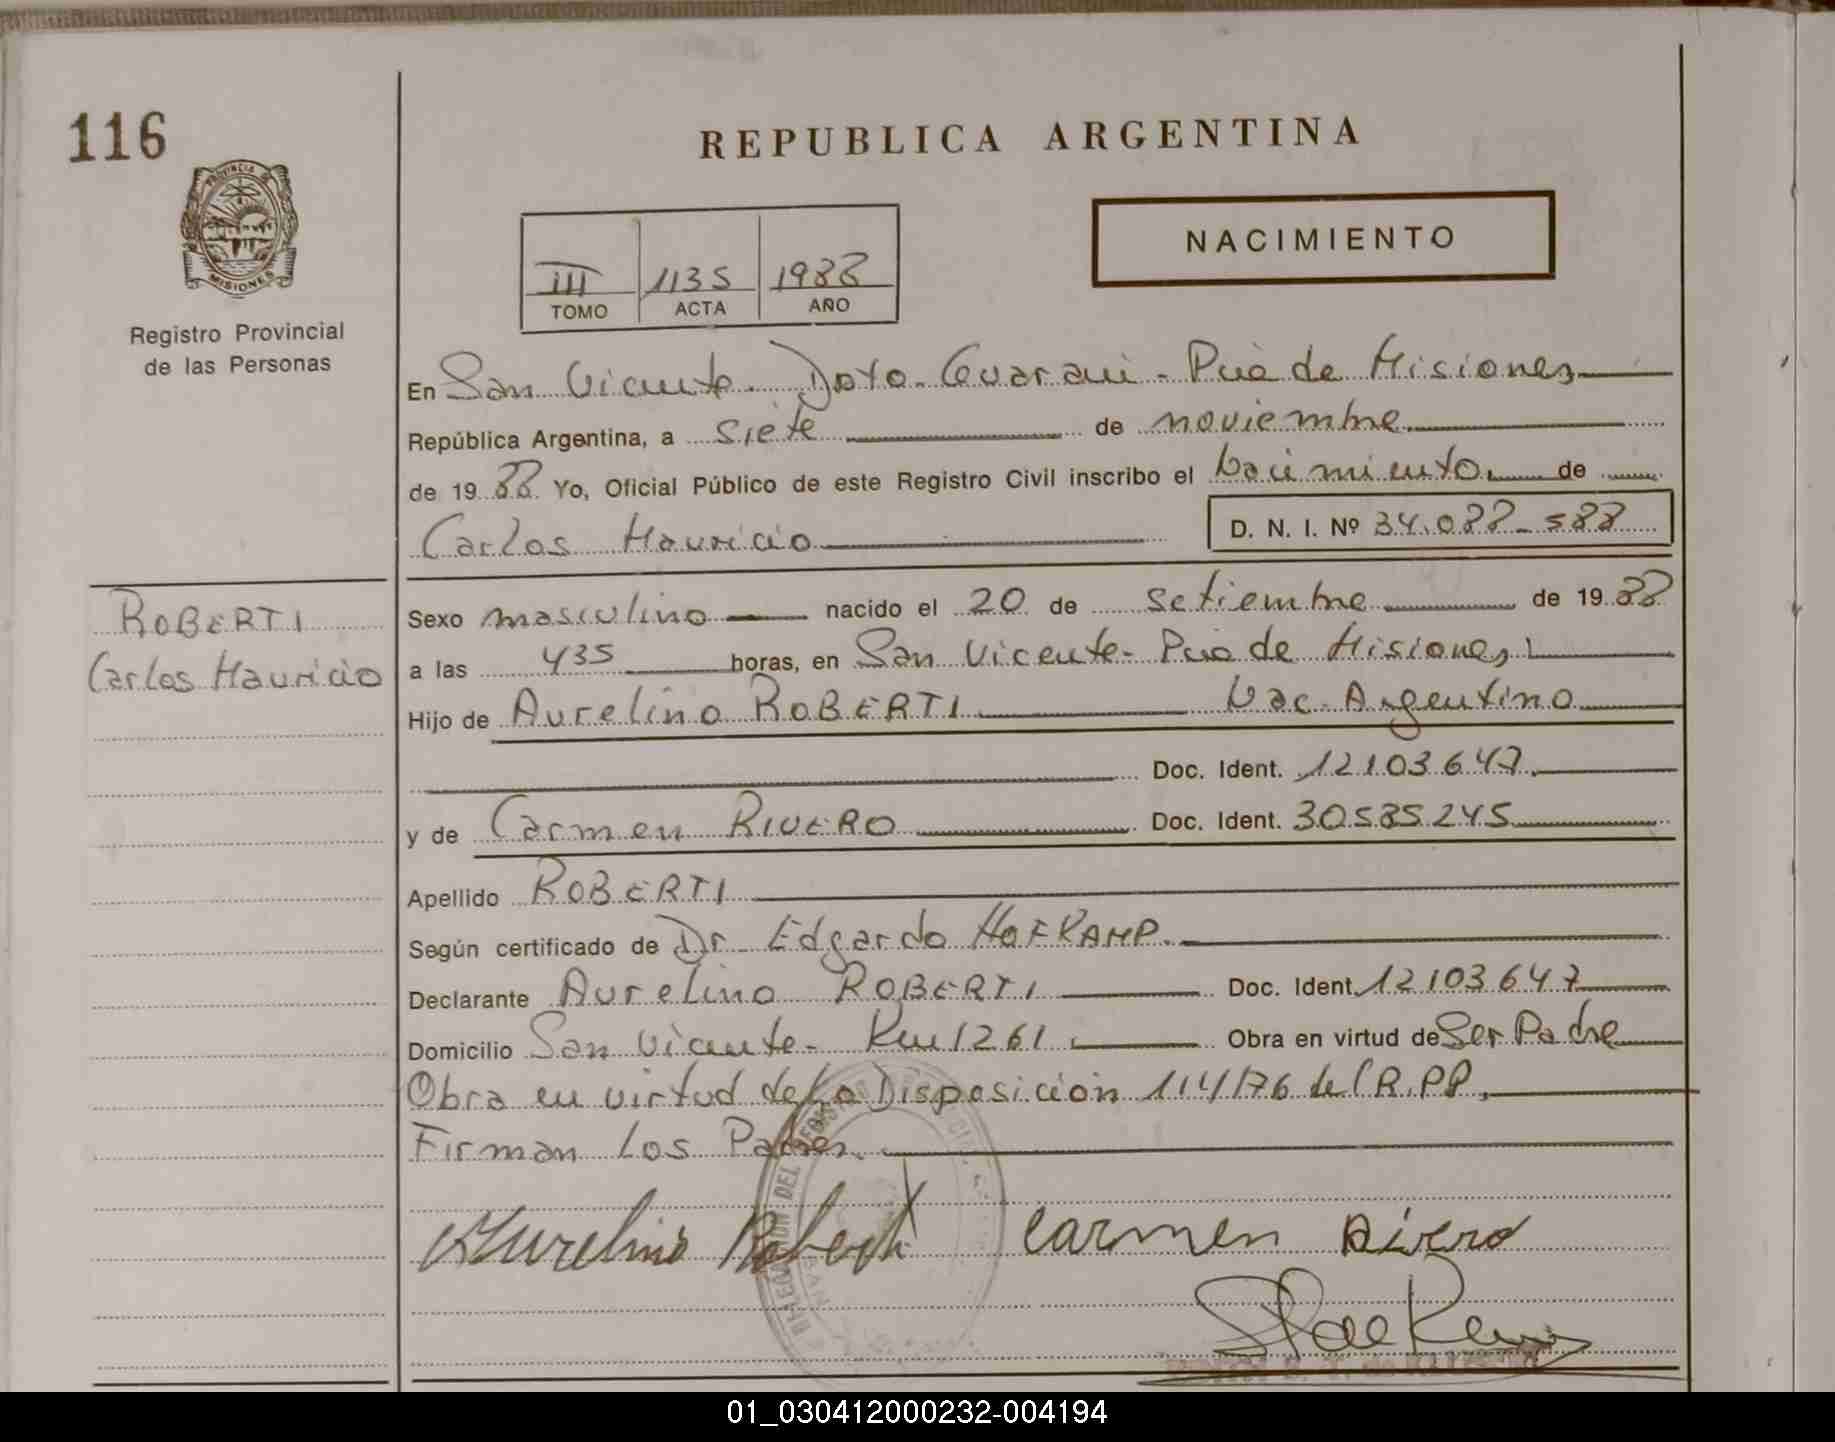 116
REPUBLICA ARGENTINA
PROVINCIA DE MISIONES
Registro Provincial
de las Personas
III 1135 1988
TOMO ACTA AÑO
NACIMIENTO
En San Vicente. Dpto. Guarani - Pcia de Misiones
República Argentina, a siete de noviembre
de 1988 Yo, Oficial Público de este Registro Civil inscribo el Nacimiento de
Carlos Mauricio D. N. I. Nº 34.088-588
ROBERTI
Carlos Mauricio
Sexo masculino nacido el 20 de Setiembre de 1988
a las 435 horas, en San Vicente - Pcia de Misiones
Hijo de Aurelino ROBERTI Nac. Argentino
Doc. Ident. 12103647
y de Carmen RIVERO Doc. Ident. 30585245
Apellido ROBERTI
Según certificado de Dr. Edgardo HOFKAMP.
Declarante Aurelino ROBERTI Doc. Ident. 12103647
Domicilio San Vicente - Km 1261 Obra en virtud de Ser Padre
Obra en virtud de La Disposición 114/76 del R.PP.
Firman Los Padres.
Aurelino Roberti Carmen Rivero
01_030412000232-004194